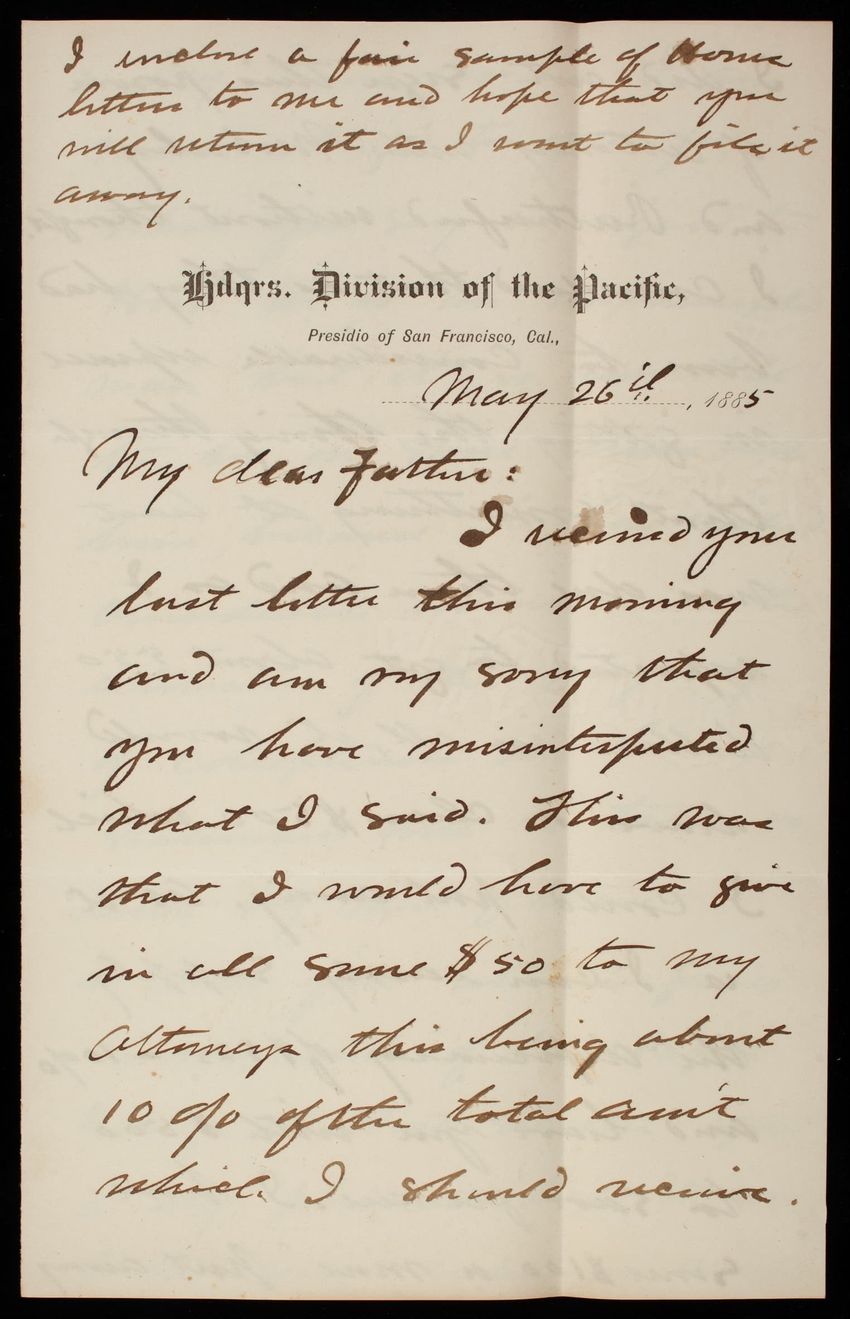 I inclose a fair sample of Home
letters to me and hope that you
will return it as I want to file it
away.
Hdqrs. Division of the Pacific,
Presidio of San Francisco, Cal.,
May 26th, 1885
My dear Father:
I received your
last letter this morning
and am very sorry that
you have misinterpreted
what I said. This was
that I would have to give
in all some $50 to my
Attorneys this being about
10 o/o of the total am't
which I should receive.